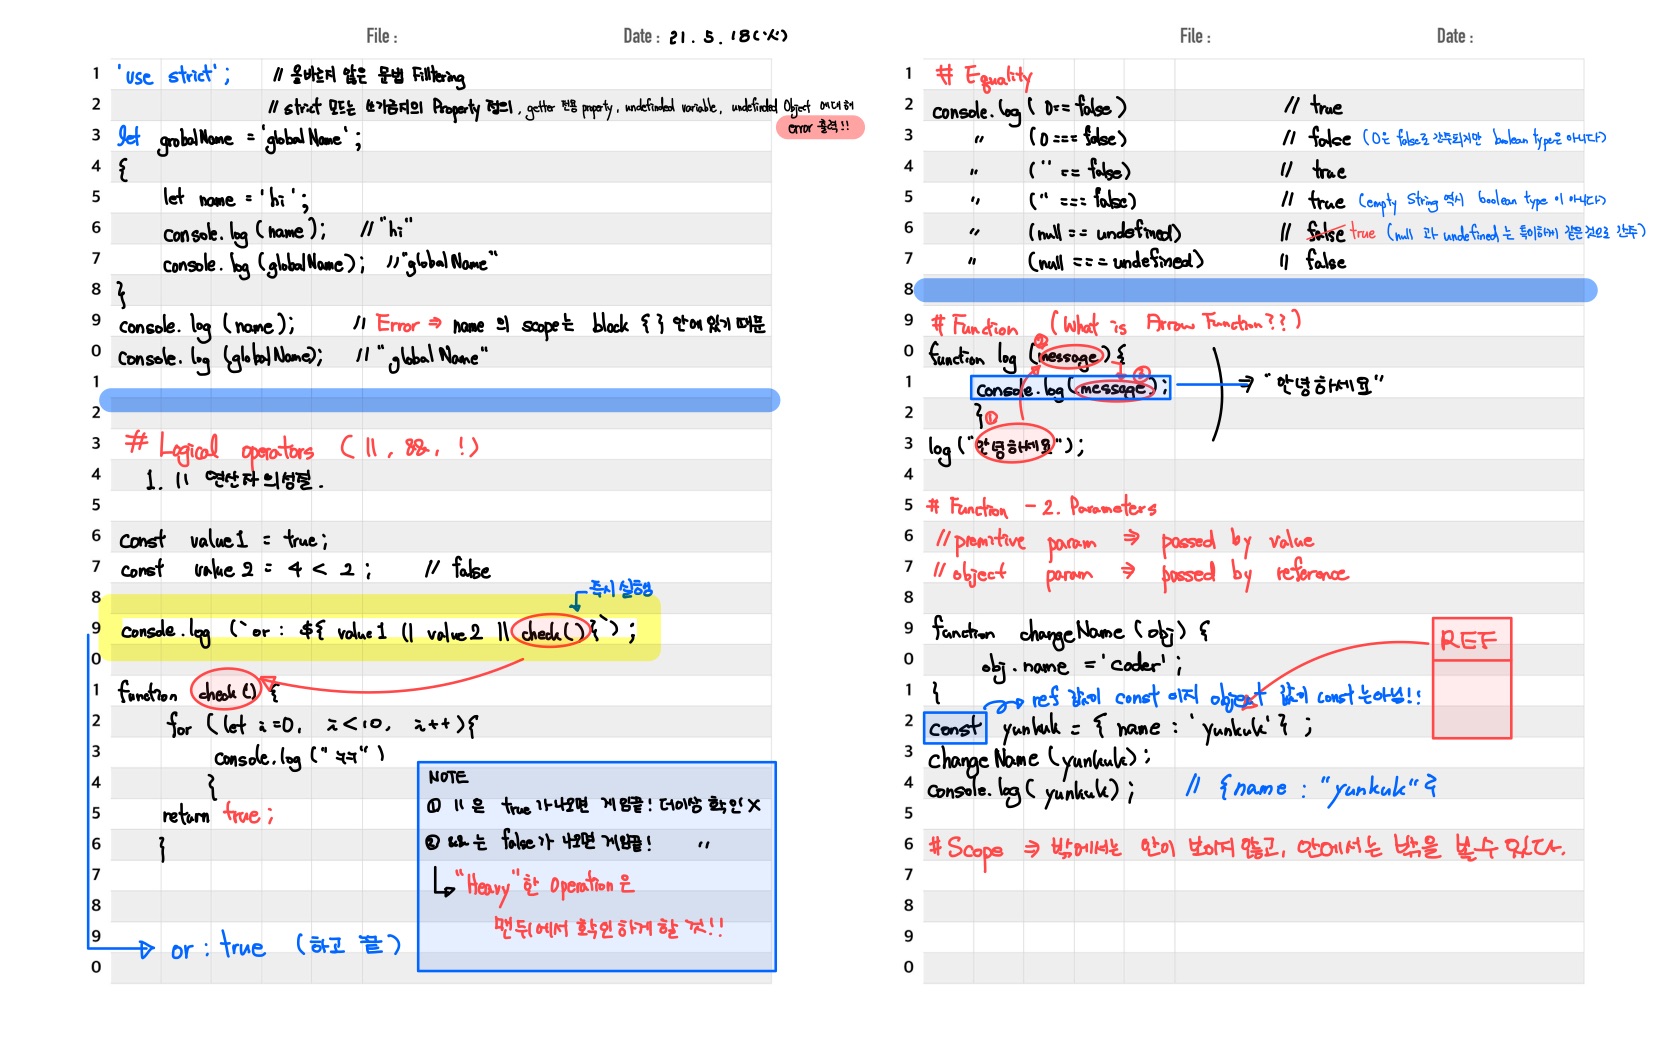 File :
Date : 21. 5. 18(火)
1 'use strict'; // 올바르지 않은 문법 Filtering
2 // strict 모드는 쓰기금지의 Property 정의, getter 전용 property, undefinded variable, undefinded Object 에 대해
error 출력!!
3 let grobalName = 'globalName';
4 {
5 let name = 'hi';
6 console.log (name); // "hi"
7 console.log (globalName); // "globalName"
8 }
9 console.log (name); // Error ⇒ name 의 scope는 block { } 안에 있기 때문
0 console.log (globalName); // "globalName"
1
2
3 # Logical operators ( ||, &&, !)
4 1. || 연산자의 성질.
5
6 const value1 = true;
7 const value2 = 4 < 2; // false
8 즉시 실행
9 console.log (`or : ${ value1 || value2 || check()}`);
0
1 function check() {
2 for (let i=0, i<10, i++){
3 console.log (" ㅋㅋ")
4 }
5 return true;
6 }
7
8
9 or : true (하고 끝)
0
NOTE
① || 은 true가 나오면 게임끝! 더이상 확인 X
② &&는 false가 나오면 게임끝! 〃
↳ "Heavy"한 Operation은
맨뒤에서 확인하게 할 것!!
File :
Date :
1 # Equality
2 console.log ( 0== false) // true
3 〃 (0 === false) // false (0은 false로 간주되지만 boolean type은 아니다)
4 〃 ('' == false) // true
5 〃 ('' === false) // true (empty String 역시 boolean type 이 아니다)
6 〃 (null == undefined) // false true (null 과 undefined 는 특이하게 같은것으로 간주)
7 〃 (null === undefined) // false
8
9 # Function (What is Arrow Function??)
0 function log (message) { ②
1 console.log(message); ③ ⇒ "안녕하세요"
2 } ①
3 log("안녕하세요");
4
5 # Function - 2. Parameters
6 // premitive param ⇒ passed by value
7 // object param ⇒ passed by reference
8
9 function changeName (obj) {
0 obj.name = 'coder';
1 } ref 값이 const 이지 object 값이 const는 아님!!
REF
2 const yunkuk = { name : 'yunkuk' } ;
3 changeName (yunkuk);
4 console.log( yunkuk); // {name : "yunkuk"}
5
6 # Scope ⇒ 밖에서는 안이 보이지 않고, 안에서는 밖을 볼 수 있다.
7
8
9
0